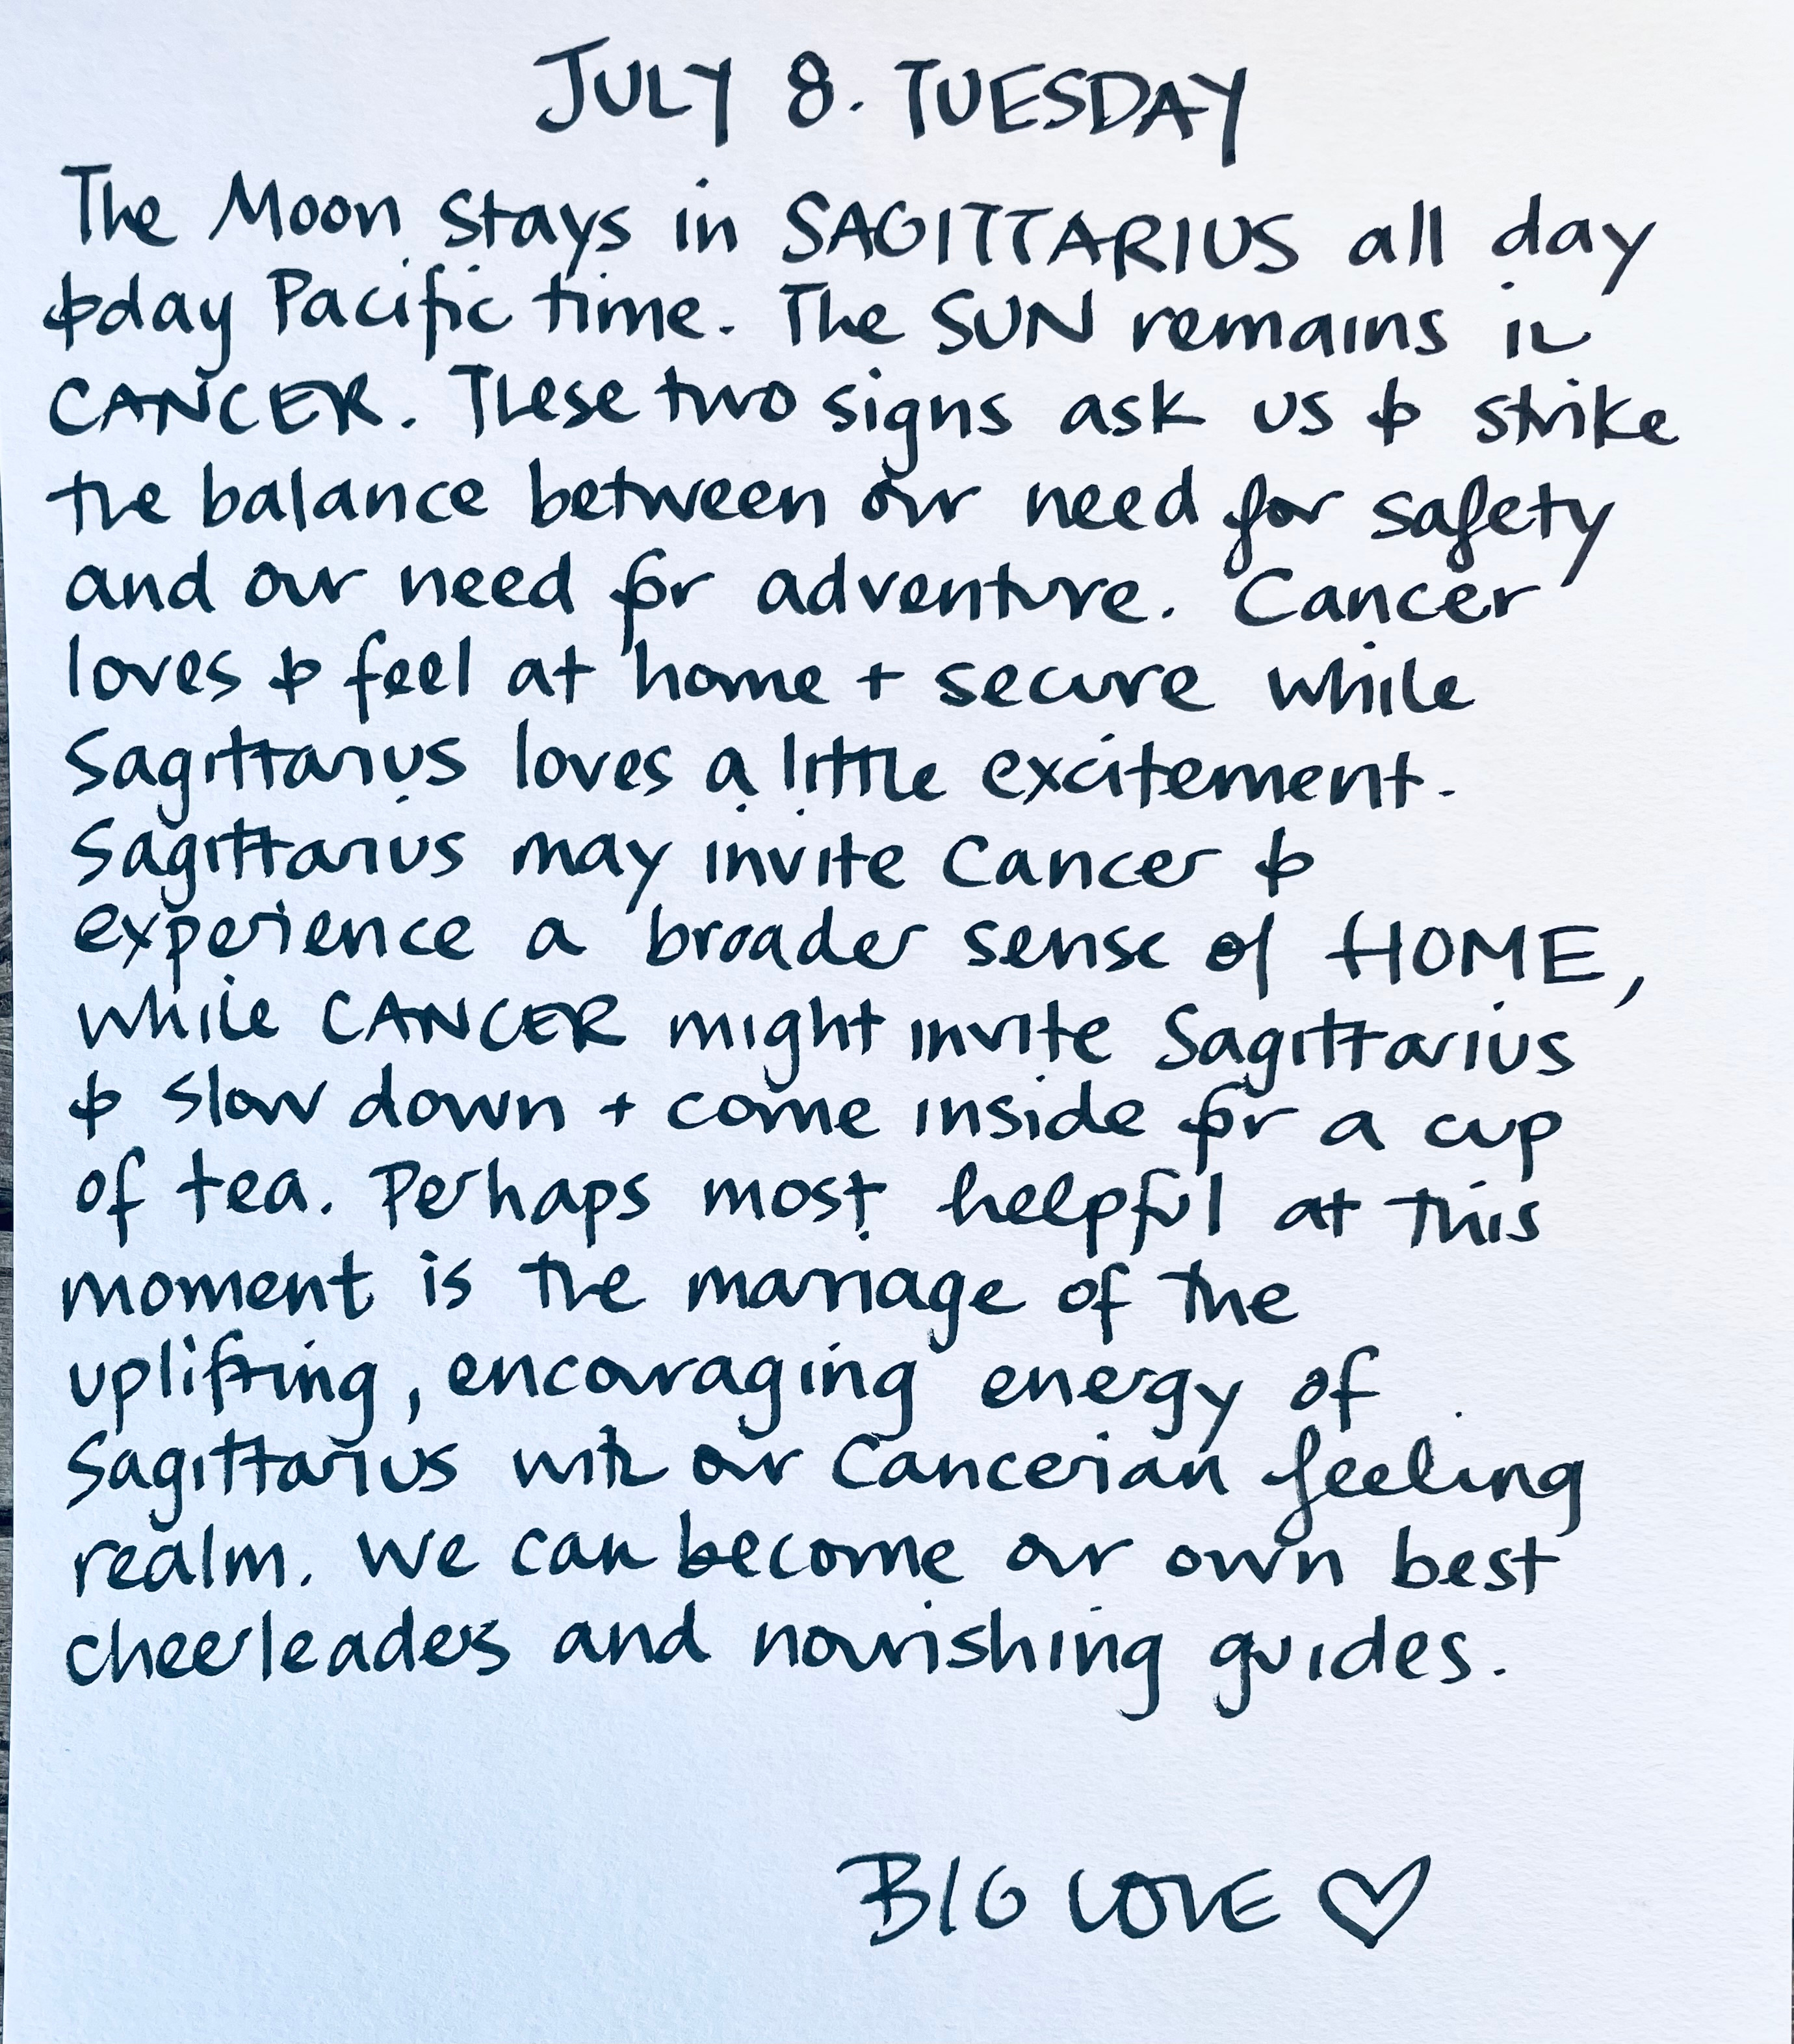 JULY 8. TUESDAY
The Moon stays in SAGITTARIUS all day
today Pacific time. The SUN remains in
CANCER. These two signs ask us to strike
the balance between our need for safety
and our need for adventure. Cancer
loves to feel at home + secure while
Sagittarius loves a little excitement.
Sagittarius may invite Cancer to
experience a broader sense of HOME,
while CANCER might invite Sagittarius
to slow down + come inside for a cup
of tea. Perhaps most helpful at this
moment is the marriage of the
uplifting, encouraging energy of
Sagittarius with our Cancerian feeling
realm. We can become our own best
cheerleaders and nourishing guides.
BIG LOVE ♡